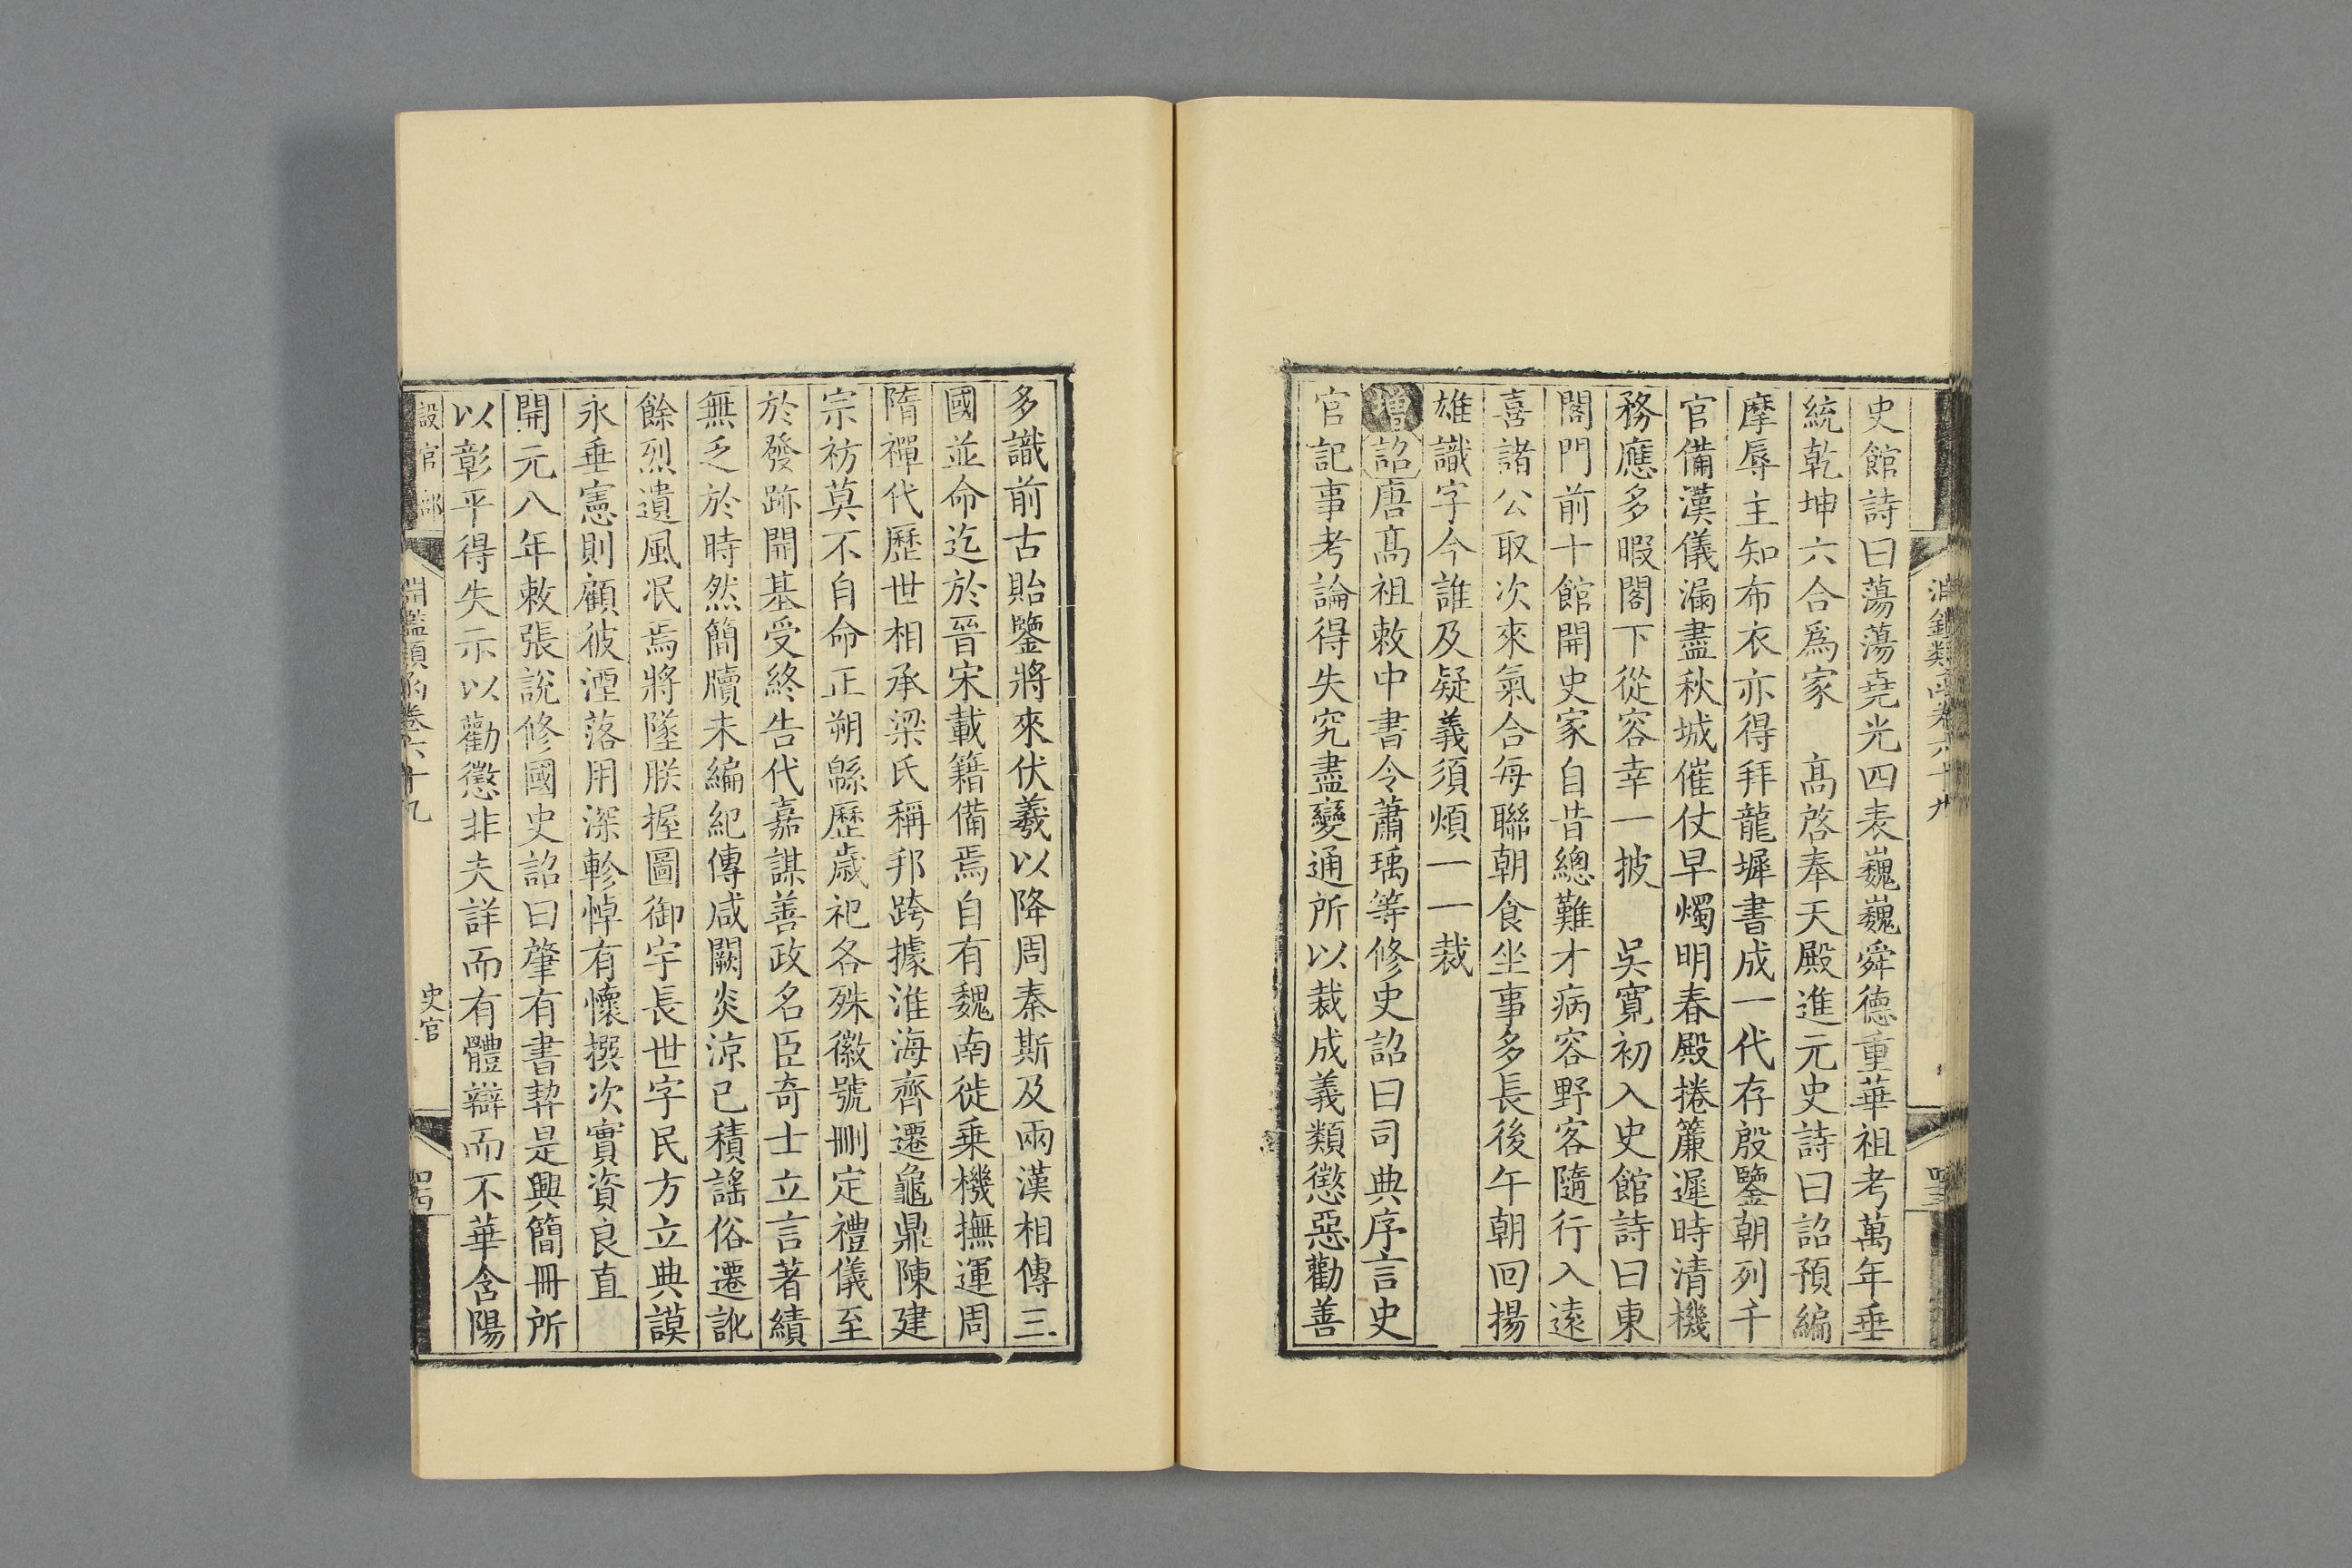 史館詩曰蕩蕩堯光四表巍巍舜德重華祖考萬年垂
統乾坤六合爲家　高啓奉天殿進元史詩曰詔預編
摩辱主知布衣亦得拜龍墀書成一代存殷鑒朝列千
官備漢儀漏盡秋城催仗早燭明春殿捲簾遲時清機
務應多暇閣下從容幸一披　吳寛初入史館詩曰東
閣門前十館開史家自昔總難才病容野客隨行入逺
喜諸公取次來氣合每聯朝食坐事多長後午朝回揚
雄識字今誰及疑義須煩一一裁
增詔唐髙祖敕中書令蕭瑀等修史詔曰司典序言史
官記事考論得失究盡變通所以裁成義類懲惡勸善
多識前古貽鑒將來伏羲以降周秦斯及兩漢相傳三
國並命迄於晉宋載籍備焉自有魏南徙乗機撫運周
隋禪代歷世相承梁氏稱邦跨據淮海齊遷龜鼎陳建
宗祊莫不自命正朔緜歷歲祀各殊徽號刪定禮儀至
於發跡開基受終告代嘉謀善政名臣奇士立言著績
無乏於時然簡牘未編紀傳咸闕炎涼已積謠俗遷訛
餘烈遺風泯焉將墜朕握圖御宇長世字民方立典謨
永垂憲則顧彼湮落用深軫悼有懷撰次實資良直
開元八年敕張說修國史詔曰肇有書契是興簡冊所
以彰平得失示以勸懲非夫詳而有體辯而不華含陽
設官部
淵鑑類函卷六十九
史官
四十四